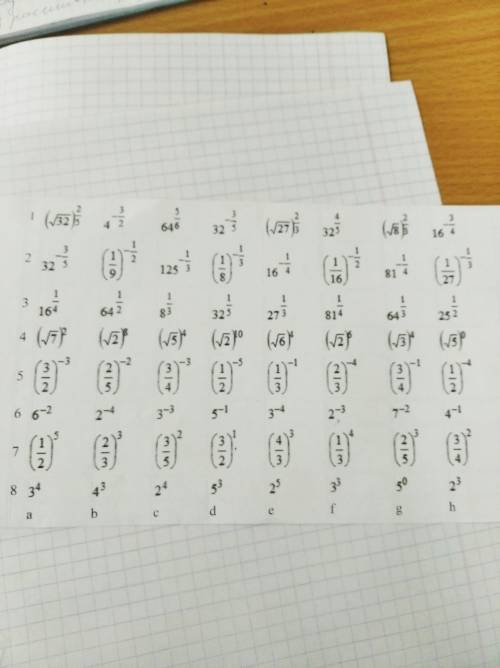 1 (√32)^(2/5) 4^(-3/2) 64^(5/6) 32^(-3/5) (√27)^(2/3) 32^(4/5) (√8)^(2/3) 16^(-3/4)
2 32^(-3/5) (1/9)^(-1/2) 125^(-1/3) (1/8)^(-1/3) 16^(-1/4) (1/16)^(-1/2) 81^(-1/4) (1/27)^(-1/3)
3 16^(1/4) 64^(1/2) 8^(1/3) 32^(1/5) 27^(1/3) 81^(1/4) 64^(1/3) 25^(1/2)
4 (√7)^2 (√2)^8 (√5)^4 (√2)^10 (√6)^4 (√2)^6 (√3)^4 (√5)^0
5 (3/2)^(-3) (2/5)^(-2) (3/4)^(-3) (1/2)^(-5) (1/3)^(-1) (2/3)^(-4) (3/4)^(-1) (1/2)^(-4)
6 6^(-2) 2^(-4) 3^(-3) 5^(-1) 3^(-4) 2^(-3) 7^(-2) 4^(-1)
7 (1/2)^5 (2/3)^3 (3/5)^2 (3/2)^1 (4/3)^3 (1/3)^4 (2/5)^3 (3/4)^2
8 3^4 4^3 2^4 5^3 2^5 3^3 5^0 2^3
a b c d e f g h